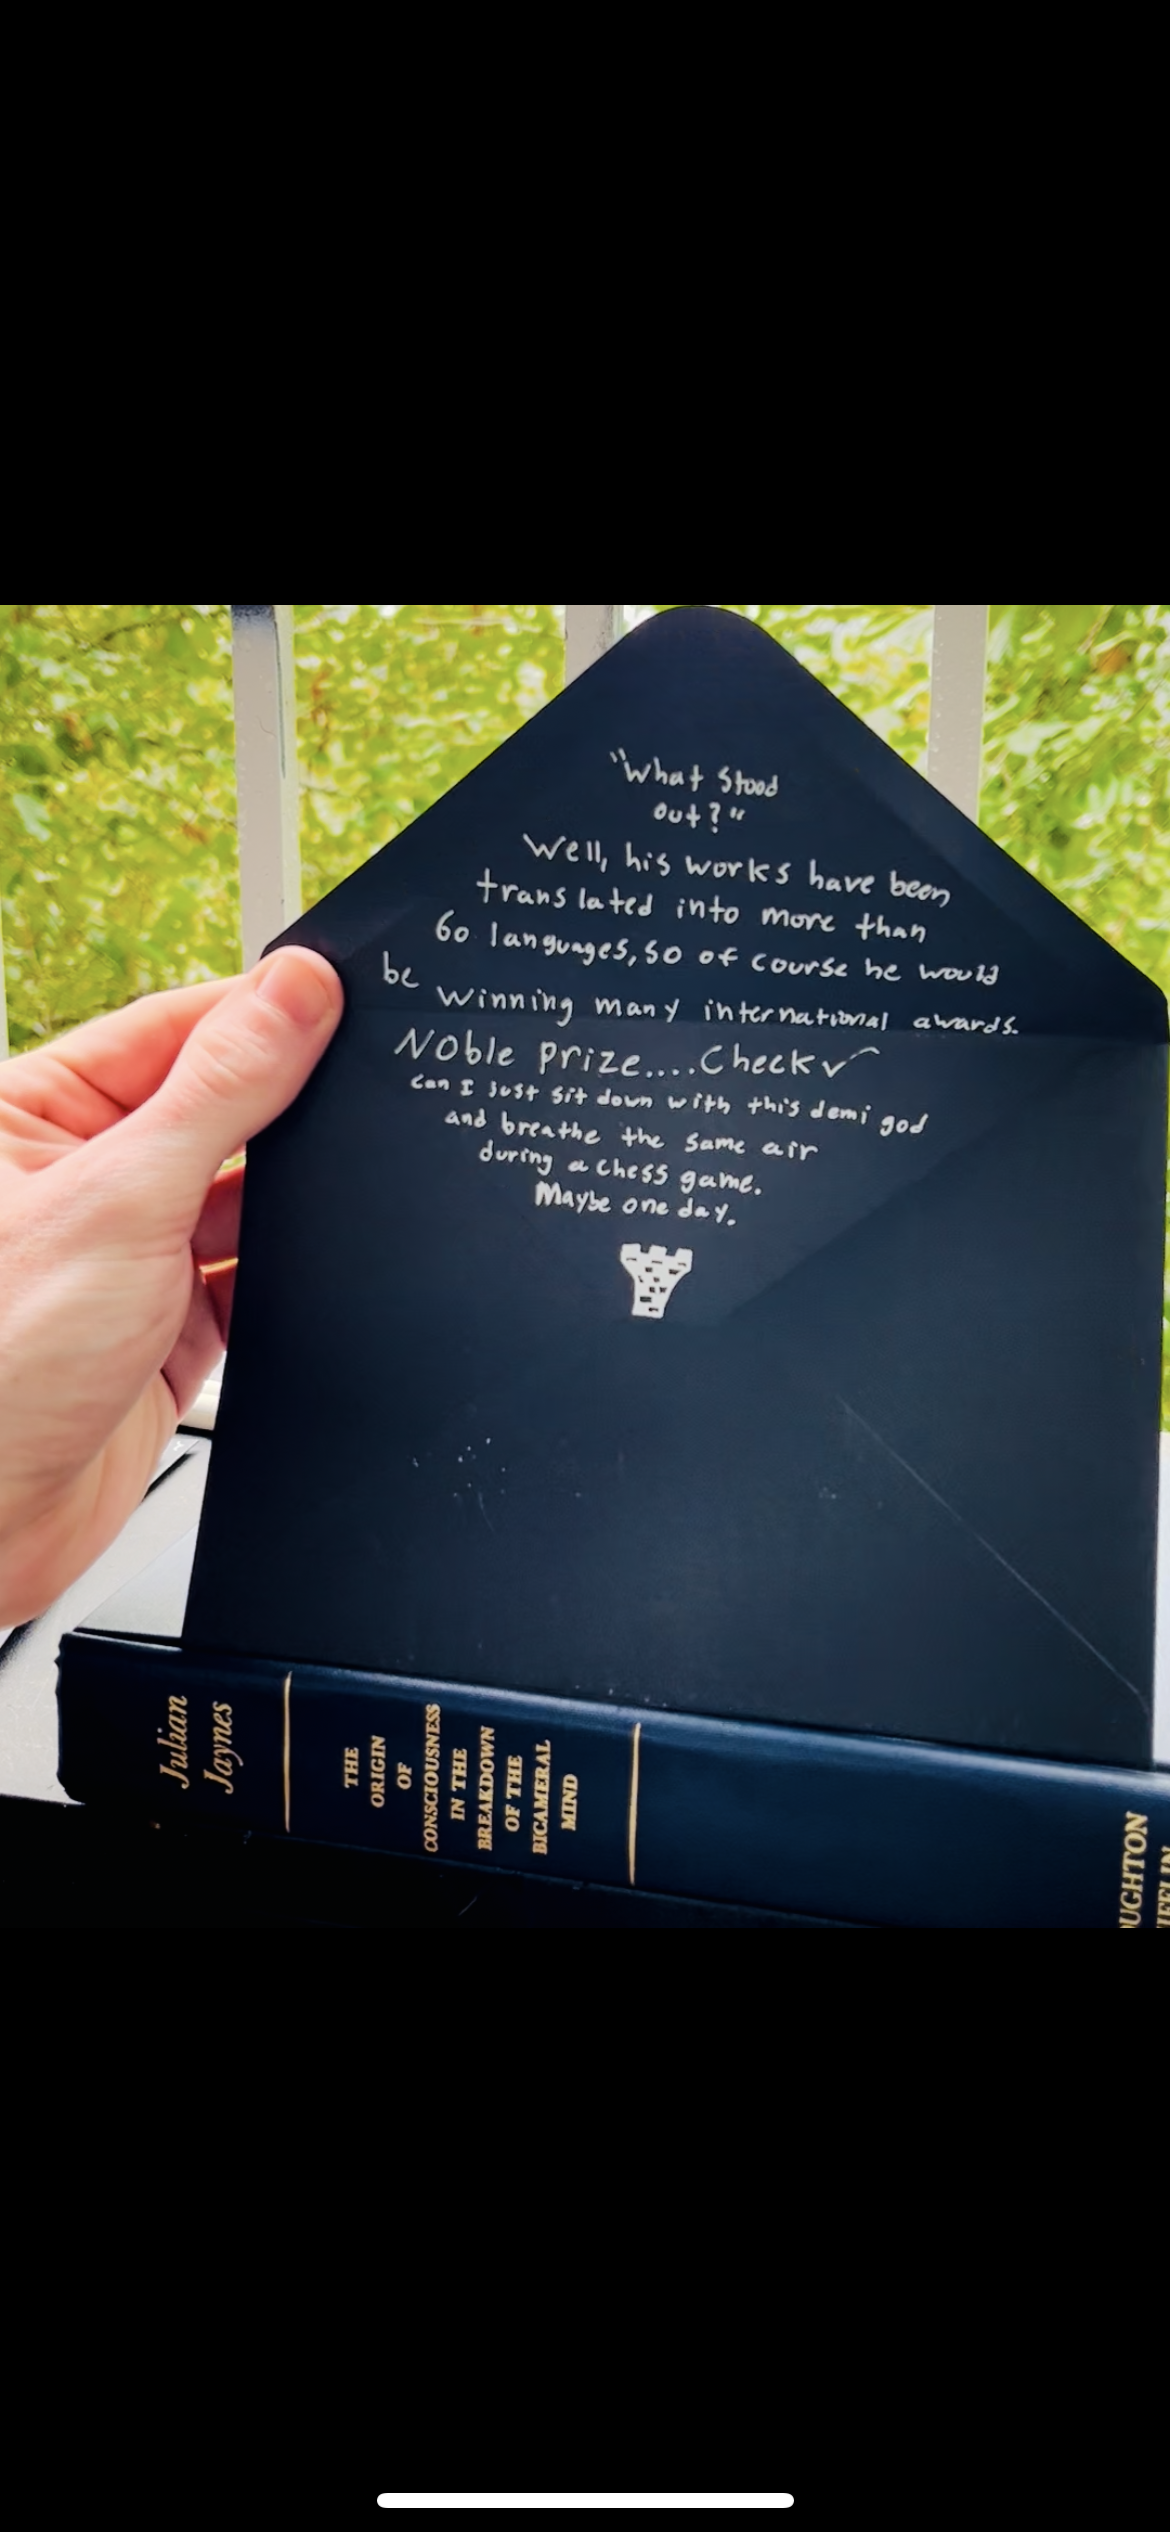 "What Stood
out?"
Well, his works have been
translated into more than
60 languages, so of course he would
be winning many international awards.
Noble prize....Check✓
can I just sit down with this demi god
and breathe the same air
during a chess game.
Maybe one day.
Julian
Jaynes
THE
ORIGIN
OF
CONSCIOUSNESS
IN THE
BREAKDOWN
OF THE
BICAMERAL
MIND